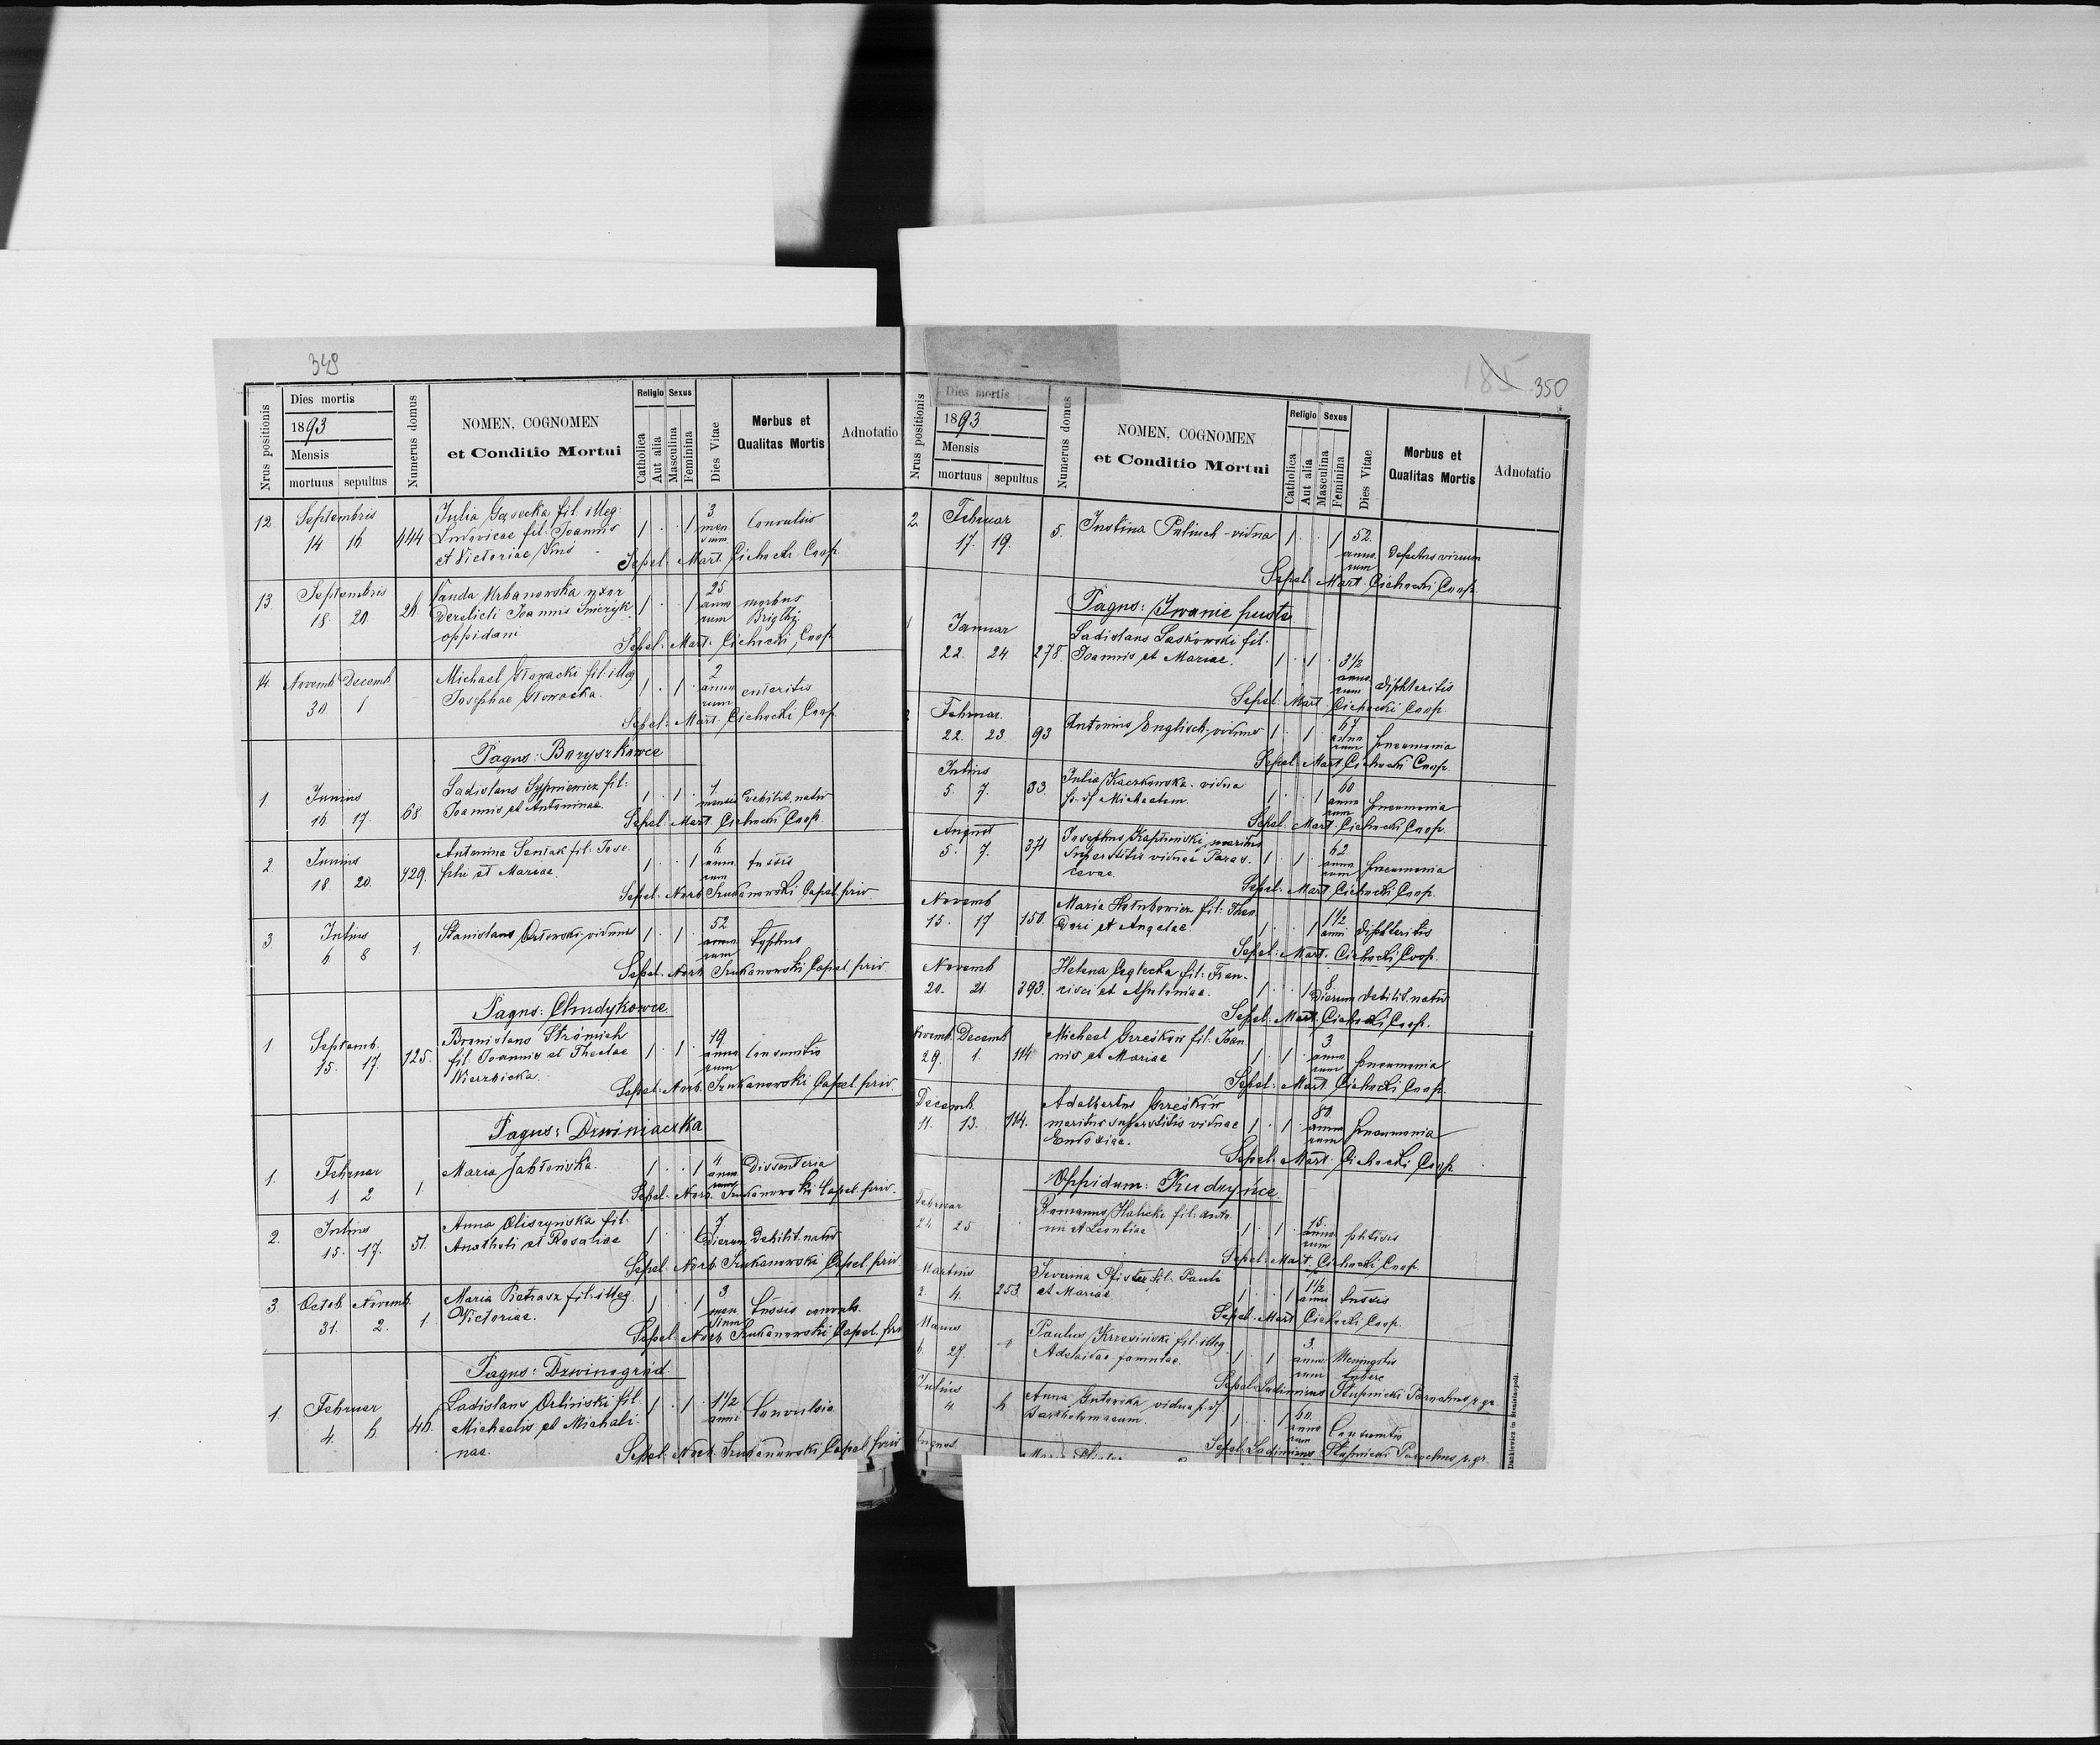 349
Nrus positionis
Dies mortis
1893
Mensis
mortuus sepultus
Numerus domus
NOMEN, COGNOMEN
et Conditio Mortui
Religio Sexus
Catholica Aut alia Masculina Feminina
Dies Vitae
Morbus et
Qualitas Mortis
Adnotatio
12 Septembris 14 16 444
Julia Gąsecka fil. illeg: 1 1 3 men sium Convulsio
Ludovicae fil. Joannis
et Victoriae
Sepel: Mart. Cichocki Coop.
13 Septembris 18 20
Vanda Urbanowska uxor 1 1 25 anno rum morbus
derelicti Joannis
oppidani
Sepel: Mart. Cichocki, Coop
14 Novemb Decemb 30 1
Michael Głowacki fil. illeg 1 1 2 anno rum enteritis
Josephae Głowacka.
Sepel: Mart. Cichocki Coop
Pagus: Boryszkowce
1 Junius 16 17 68
Ladislaus Sypniewicz fil: 1 1 1 mensis debilit. nativ
Joannis et Antoninae.
Sepel: Mart. Cichocki Coop.
2 Junius 18 20. 429.
Antonina fil: Jose 1 1 6 anno rum tussis
phi et Mariae.
Sepel: Norb Capel. priv.
3. Julius 6 8 1.
Stanislaus Orłowski viduus 1 1 52 anno rum typhus
Sepel. Norb. Capel priv.
Pagus: Chudykowce
1 Septemb. 15. 17. 125.
Bronislaus 1 1 19 anno rum Consumtio
fil. Joannis et Theclae
Wierzbicka.
Sepel: Norb. Capel. priv
Pagus: Dzwiniaczka
1. Februar 1. 2 1.
Maria Jabłońska. 1 1 4 anno rum Dissenteria
Sepel: Norb. Capel. priv.
2. Julius 15. 17. 51.
Anna Oliszynska fil. 1 1 7. dierum debilit. nativ
Anatholi et Rosaliae
Sepel: Norb Capel. priv
3. Octob. Novemb. 31. 2. 1.
Maria Pietrasz fil: illeg. 1 1 3 men sium tussis convuls.
Victoriae.
Sepel: Norb Capel. priv
Pagus: Dzwinogród
1. Februar 4. 6.
Ladislaus Orliński fil. 1 1 1 1/2 anni Convulsio
Michaelis et Michali
nae.
Sepel. Norb. Capel. priv
185 350
Nrus positionis
Dies mortis
1893
Mensis
mortuus sepultus
Numerus domus
NOMEN, COGNOMEN
et Conditio Mortui
Religio Sexus
Catholica Aut alia Masculina Feminina
Dies Vitae
Morbus et
Qualitas Mortis
Adnotatio
2 Februar 17. 19. 5.
Justina vidua 1 1 52. anno rum defectus virium
Sepel: Mart. Cichocki Coop.
Pagus: Iwanie puste
Januar 22. 24 278
Ladislaus Laskowski fil.
Joannis et Mariae. 1 1 3 1/2 anno rum diphteritis
Sepel: Mart. Cichocki Coop.
Februar. 22. 23. 93
Antonius Englisch viduus 1 1 67 anno rum pneumonia
Sepel: Mart. Cichocki Coop.
Julius 5. 7. 33.
Julia Kaczkowska vidua
p. df Michaelem. 1 1 60 anno rum pneumonia
Sepel: Mart. Cichocki Coop.
August 5. 7. 371
Josephus maritus
superstitis viduae Paras. 1 1 62. anno rum pneumonia
cevae.
Sepel: Mart Cichocki Coop.
Novemb 15. 17 150.
Maria Hołubowicz fil: Theo
dori et Angelae 1 1 1 1/2 anni diphteritis
Sepel: Mart. Cichocki Coop.
Novemb 20. 21. 393.
Helena fil: Fran-
cisci et Apoloniae. 1 1 8. dierum debilit. nativ
Sepel: Mart. Cichocki Coop.
Novemb. Decemb 29. 1. 114
Michael Grześków fil: Joan
nis et Mariae 1 1 3 anno rum pneumonia
Sepel: Mart. Cichocki Coop.
Decemb. 11. 13. 114.
Adalbertus Grześków
maritus superstitis viduae 1 1 80. anno rum pneumonia
Eudoxiae.
Sepel: Mart. Cichocki Coop
Oppidum: Kudryńce
Februar 24. 25
Romanus Halicki fil: Anto
nii et Leontiae 1 1 15. anno rum phtisis
Sepel: Mart. Cichocki Coop.
Martius 2. 4. 253.
Severina Pfister fil. Pauli
et Mariae 1 1 1 1/2 anni tussis
Sepel. Mart Cichocki Coop.
27.
Paulus Krzesiński fil. illeg
Adelaidae famulae. 1 1 3. anno rum
Sepel: Ladimirus Słupnicki Parochus r. gr.
Julius 4 6
Anna Gutowska vidua p. df
Bartholomaeum. 1 1 60. anno rum Consumtio
Sepel. Ladimirus Słupnicki Parochus r. gr.
August.
Maria Pfister